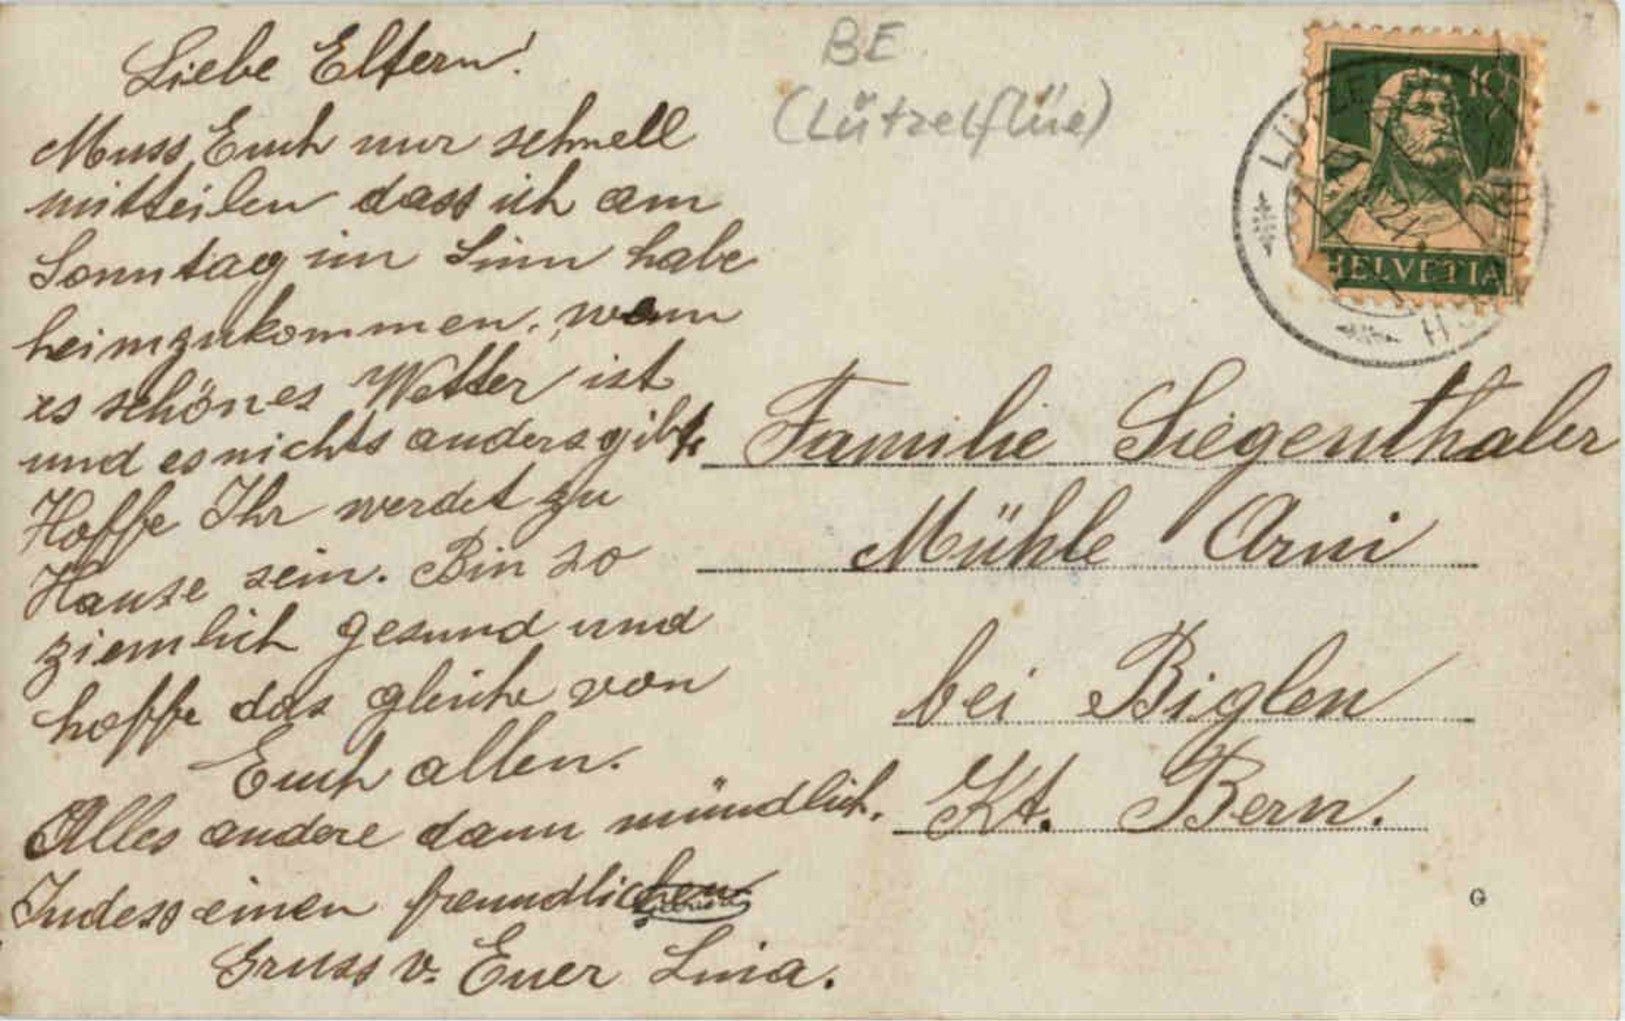 Liebe Eltern!
Muss Euch nur schnell
mitteilen dass ich am
Sonntag im Sinn habe
heimzukommen, wenn
es schönes Wetter ist
und es nichts anders gibt.
Hoffe Ihr werdet zu
Hause sein. Bin so
ziemlich gesund und
hoffe das gleiche von
Euch allen.
Alles andere dann mündlich.
Indess einen freundlichen
Gruss v. Euer Lina.
BE
(Lützelflüe)
10
HELVETIA
Familie Siegenthaler
Mühle Arni
bei Biglen
Kt. Bern.
G